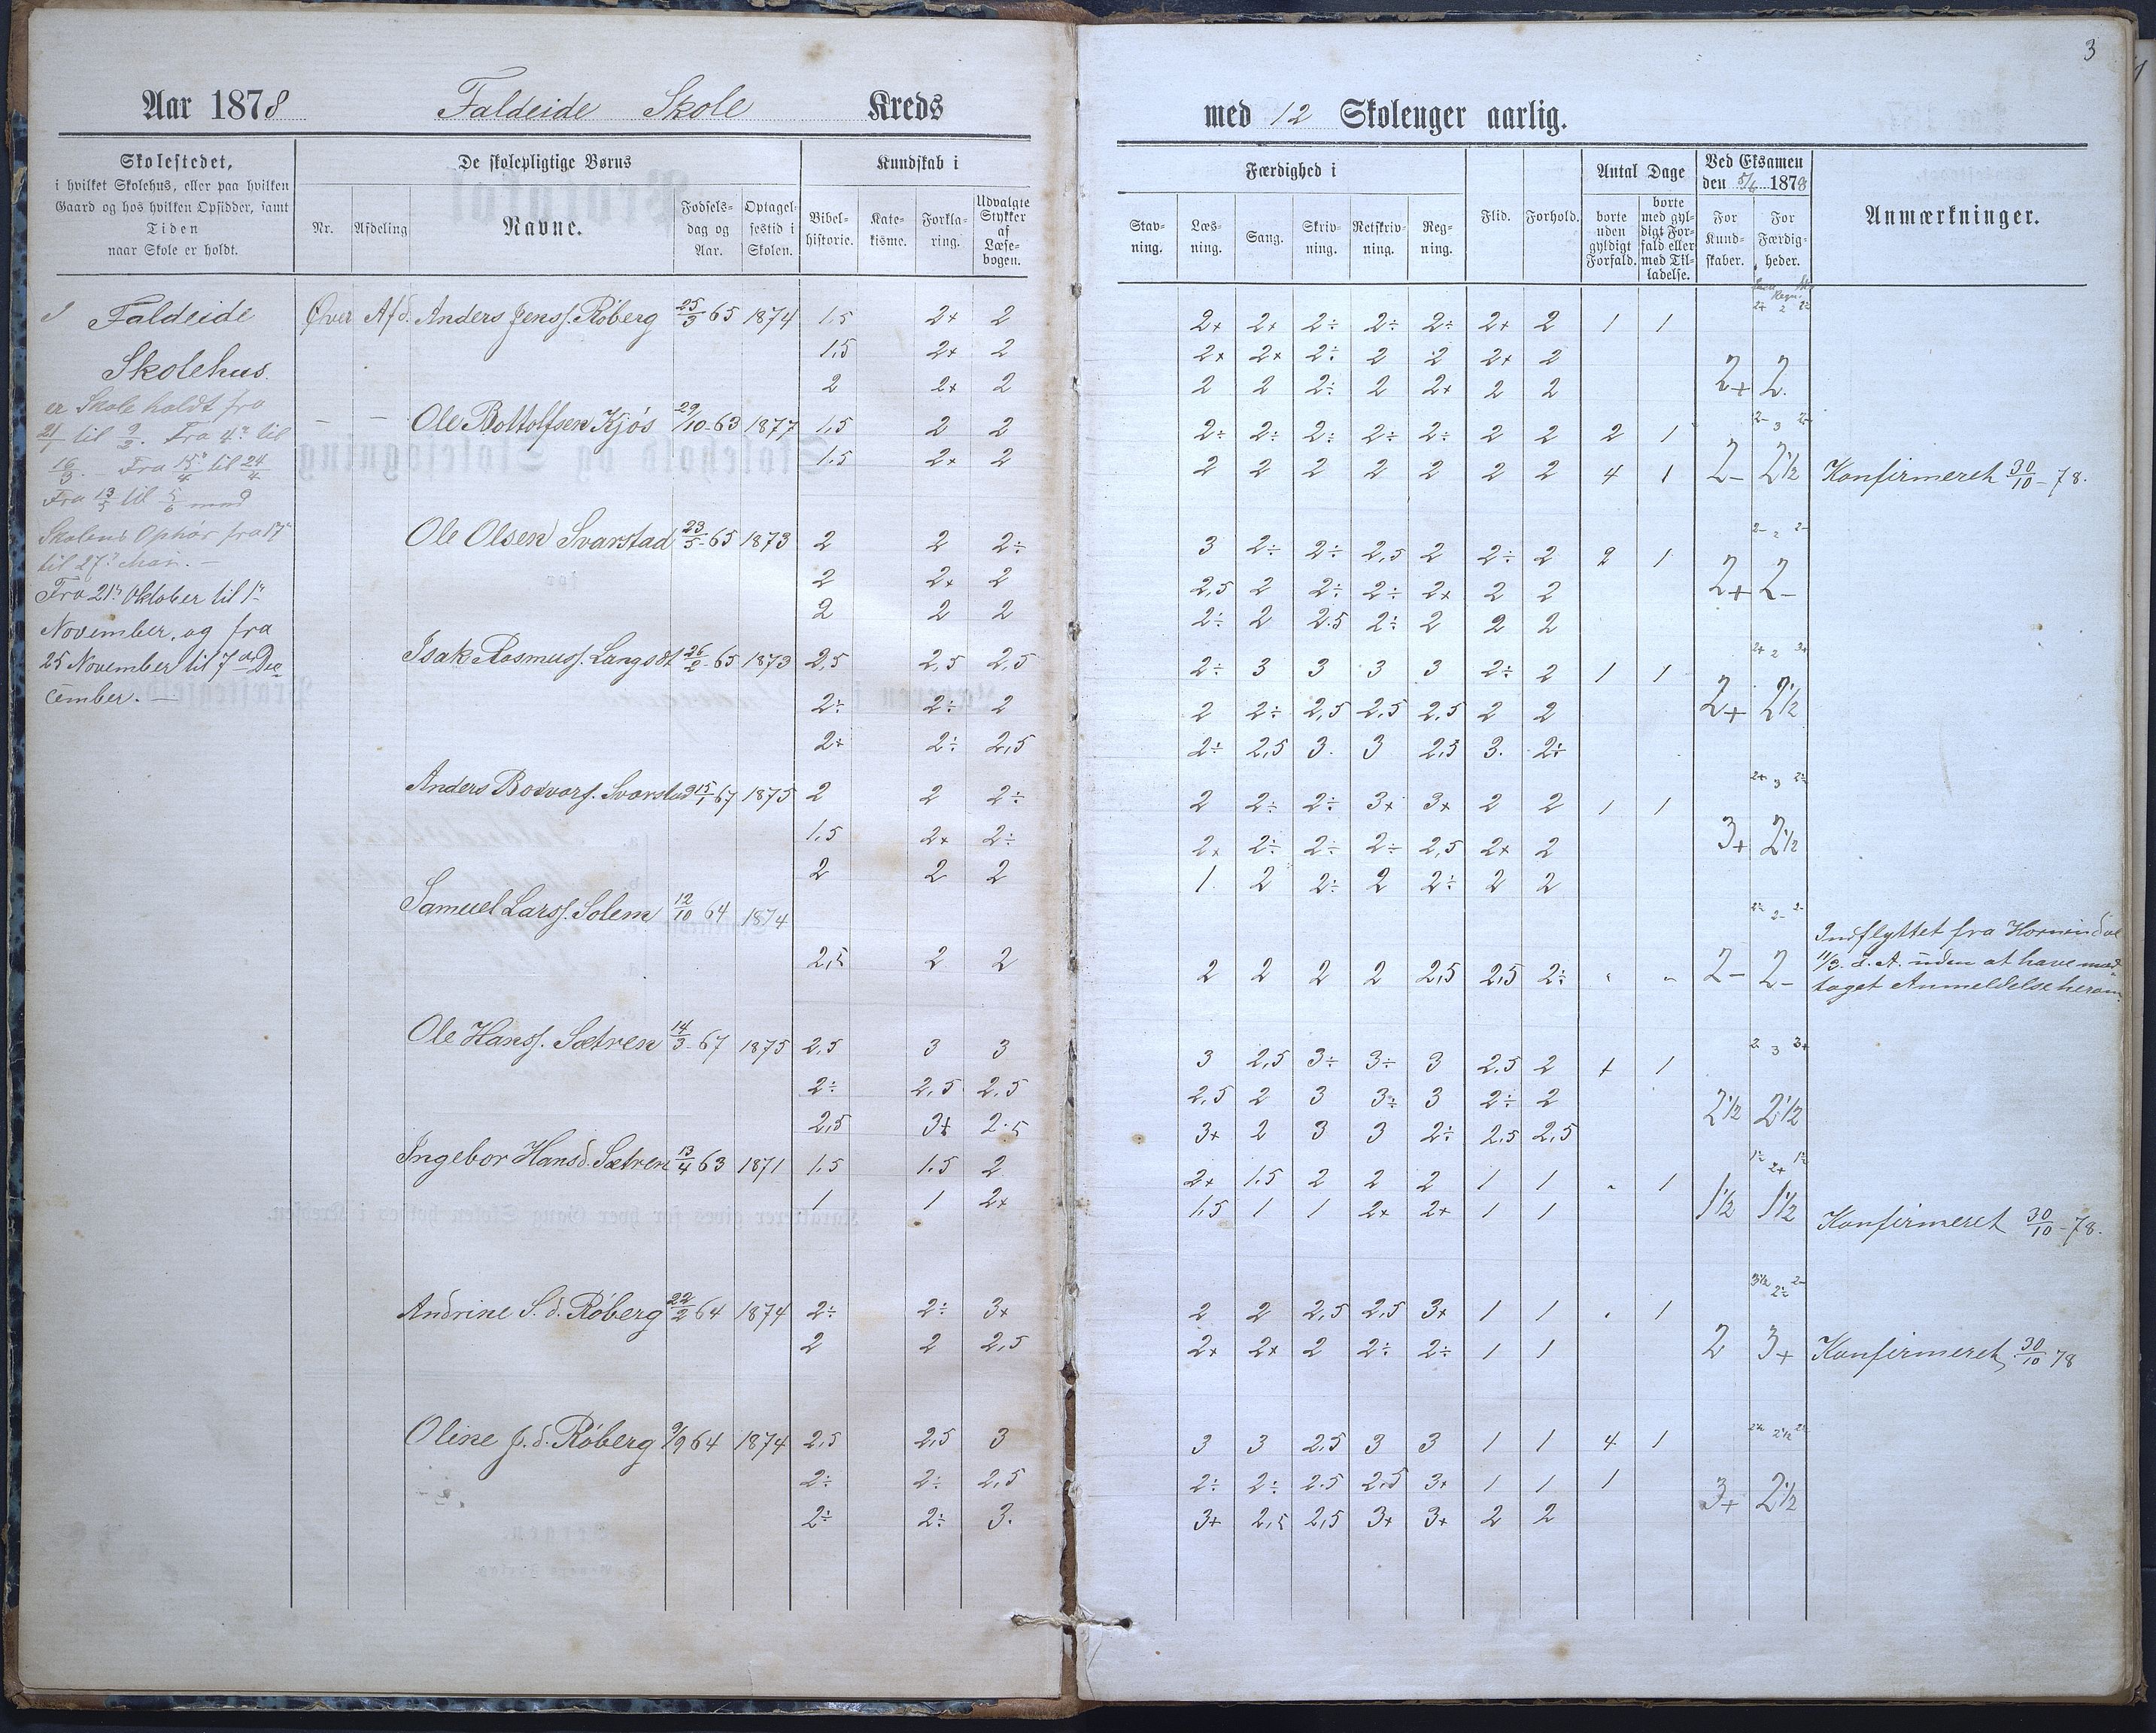 3
Aar 1878 Faldeide Skole Kreds
med 12 Skolenger aarlig.
Skolestedet,
i hvilket Skolehus, eller paa hvilken
Gaard og hos hvilken Opsidder, samt
Tiden
naar Skole er holdt.
De skolepligtige Børns
Nr.
Afdeling
Navne.
Fødsels-
dag og
Aar.
Optagel-
sestid i
Skolen.
Kundskab i
Bibel-
historie.
Kate-
kisme.
Forkla-
ring.
Udvalgte
Stykker
af
Læse-
bogen.
Færdighed i
Stav-
ning.
Læs-
ning.
Sang.
Skriv-
ning.
Retskriv-
ning.
Reg-
ning.
Flid.
Forhold.
Antal Dage
borte
uden
gyldigt
Forfald.
borte
med gyl-
digt For-
fald eller
med Til-
ladelse.
Ved Eksamen
den 5/6 1878
For
Kund-
skaber.
For
Færdig-
heder.
Anmærkninger.
I Faldeide
Skolehus.
er Skole holdt fra
21/1 til 9/2. Fra 4de til
16/3. Fra 15/4 til 24/4
Fra 13/5 til 5/6 med
Skolens Ophør fra 17de
til 27de Mai. —
Fra 21de Oktober til 1ste
November, og fra
25 November til 7de De-
cember. —
Øver Afd. Anders Jenss. Röberg 25/3 65 1874 1,5 2+ 2 2+ 2+ 2÷ 2÷ 2÷ 2+ 2 1 1
1,5 2+ 2 2+ 2+ 2÷ 2 2 2+ 2
2 2+ 2 2 2 2÷ 2 2+ 2 2 2+ 2.
— — Ole Bottolfsen Kjös 29/10-63 1877 1,5 2 2 2÷ 2÷ 2÷ 2÷ 2÷ 2 2 2 1
1,5 2+ 2 2 2 2 2 2 2 2 4 1 2- 2½ Konfirmeret 30/10-78.
Ole Olsen Svarstad 23/5-65 1873 2 2 2÷ 3 2÷ 2÷ 2,5 2 2÷ 2 2 1
2 2+ 2 2,5 2 2÷ 2÷ 2+ 2 2 2+ 2-
2 2 2 2÷ 2 2.5 2÷ 2 2 2
Isak Rasmuss. Langsæt 26/2-65 1873 2,5 2,5 2,5 2÷ 3 3 3 3 2÷ 2 1 1
2÷ 2÷ 2 2 2÷ 2,5 2,5 2,5 2 2 2+ 2½
2+ 2÷ 2,5 2÷ 2,5 3. 3 2,5 3. 2÷
Anders Bosvars. Svarstad 15/1 67 1875 2 2 2÷ 2 2÷ 2÷ 3+ 3+ 2 2 1 1
1,5 2+ 2÷ 2+ 2÷ 2÷ 2÷ 2,5 2+ 2 3+ 2½
2 2 2 1 2 2÷ 2 2÷ 2 2
Samuel Larss. Solem 12/10 64 1874
2,5 2 2 2 2 2 2 2,5 2,5 2÷ 2- 2-
Indflyttet fra Hornindal
11/3. d. A. uden at have mod-
taget Anmeldelse herom.
Ole Hanss. Sætren 14/3-67 1875 2,5 3 3 3 2,5 3÷ 3÷ 3 2.5 2 + 1
2÷ 2,5 2,5 2,5 2 3 3÷ 3 2÷ 2 2½ 2½
2,5 3+ 2.5 3+ 2 3 3 2÷ 2,5 2,5
Ingebor Hansd. Sætren 13/4 63 1871 1.5 1.5 2 2+ 1.5 2 2 2 1 1 1
1 1 2+ 1,5 1 1 2+ 2+ 1 1 1½ 1½ Konfirmeret 30/10-78.
Andrine S. d. Röberg 22/2 64 1874 2÷ 2÷ 3+ 2 2 2,5 2,5 3+ 1 1 1
2 2 2,5 2+ 2+ 2 2÷ 2÷ 1 1 2 3+ Konfirmeret 30/10 78
Oline J. d. Röberg 9/9 64 1874 2,5 2,5 3 3 3 2,5 3 3 1 1 4 1
2÷ 2÷ 2,5 2÷ 2÷ 2.5 2,5 3+ 1 1 1 3+ 2½
2÷ 2÷ 3. 3+ 2,5 2,5 3+ 3+ 2 2